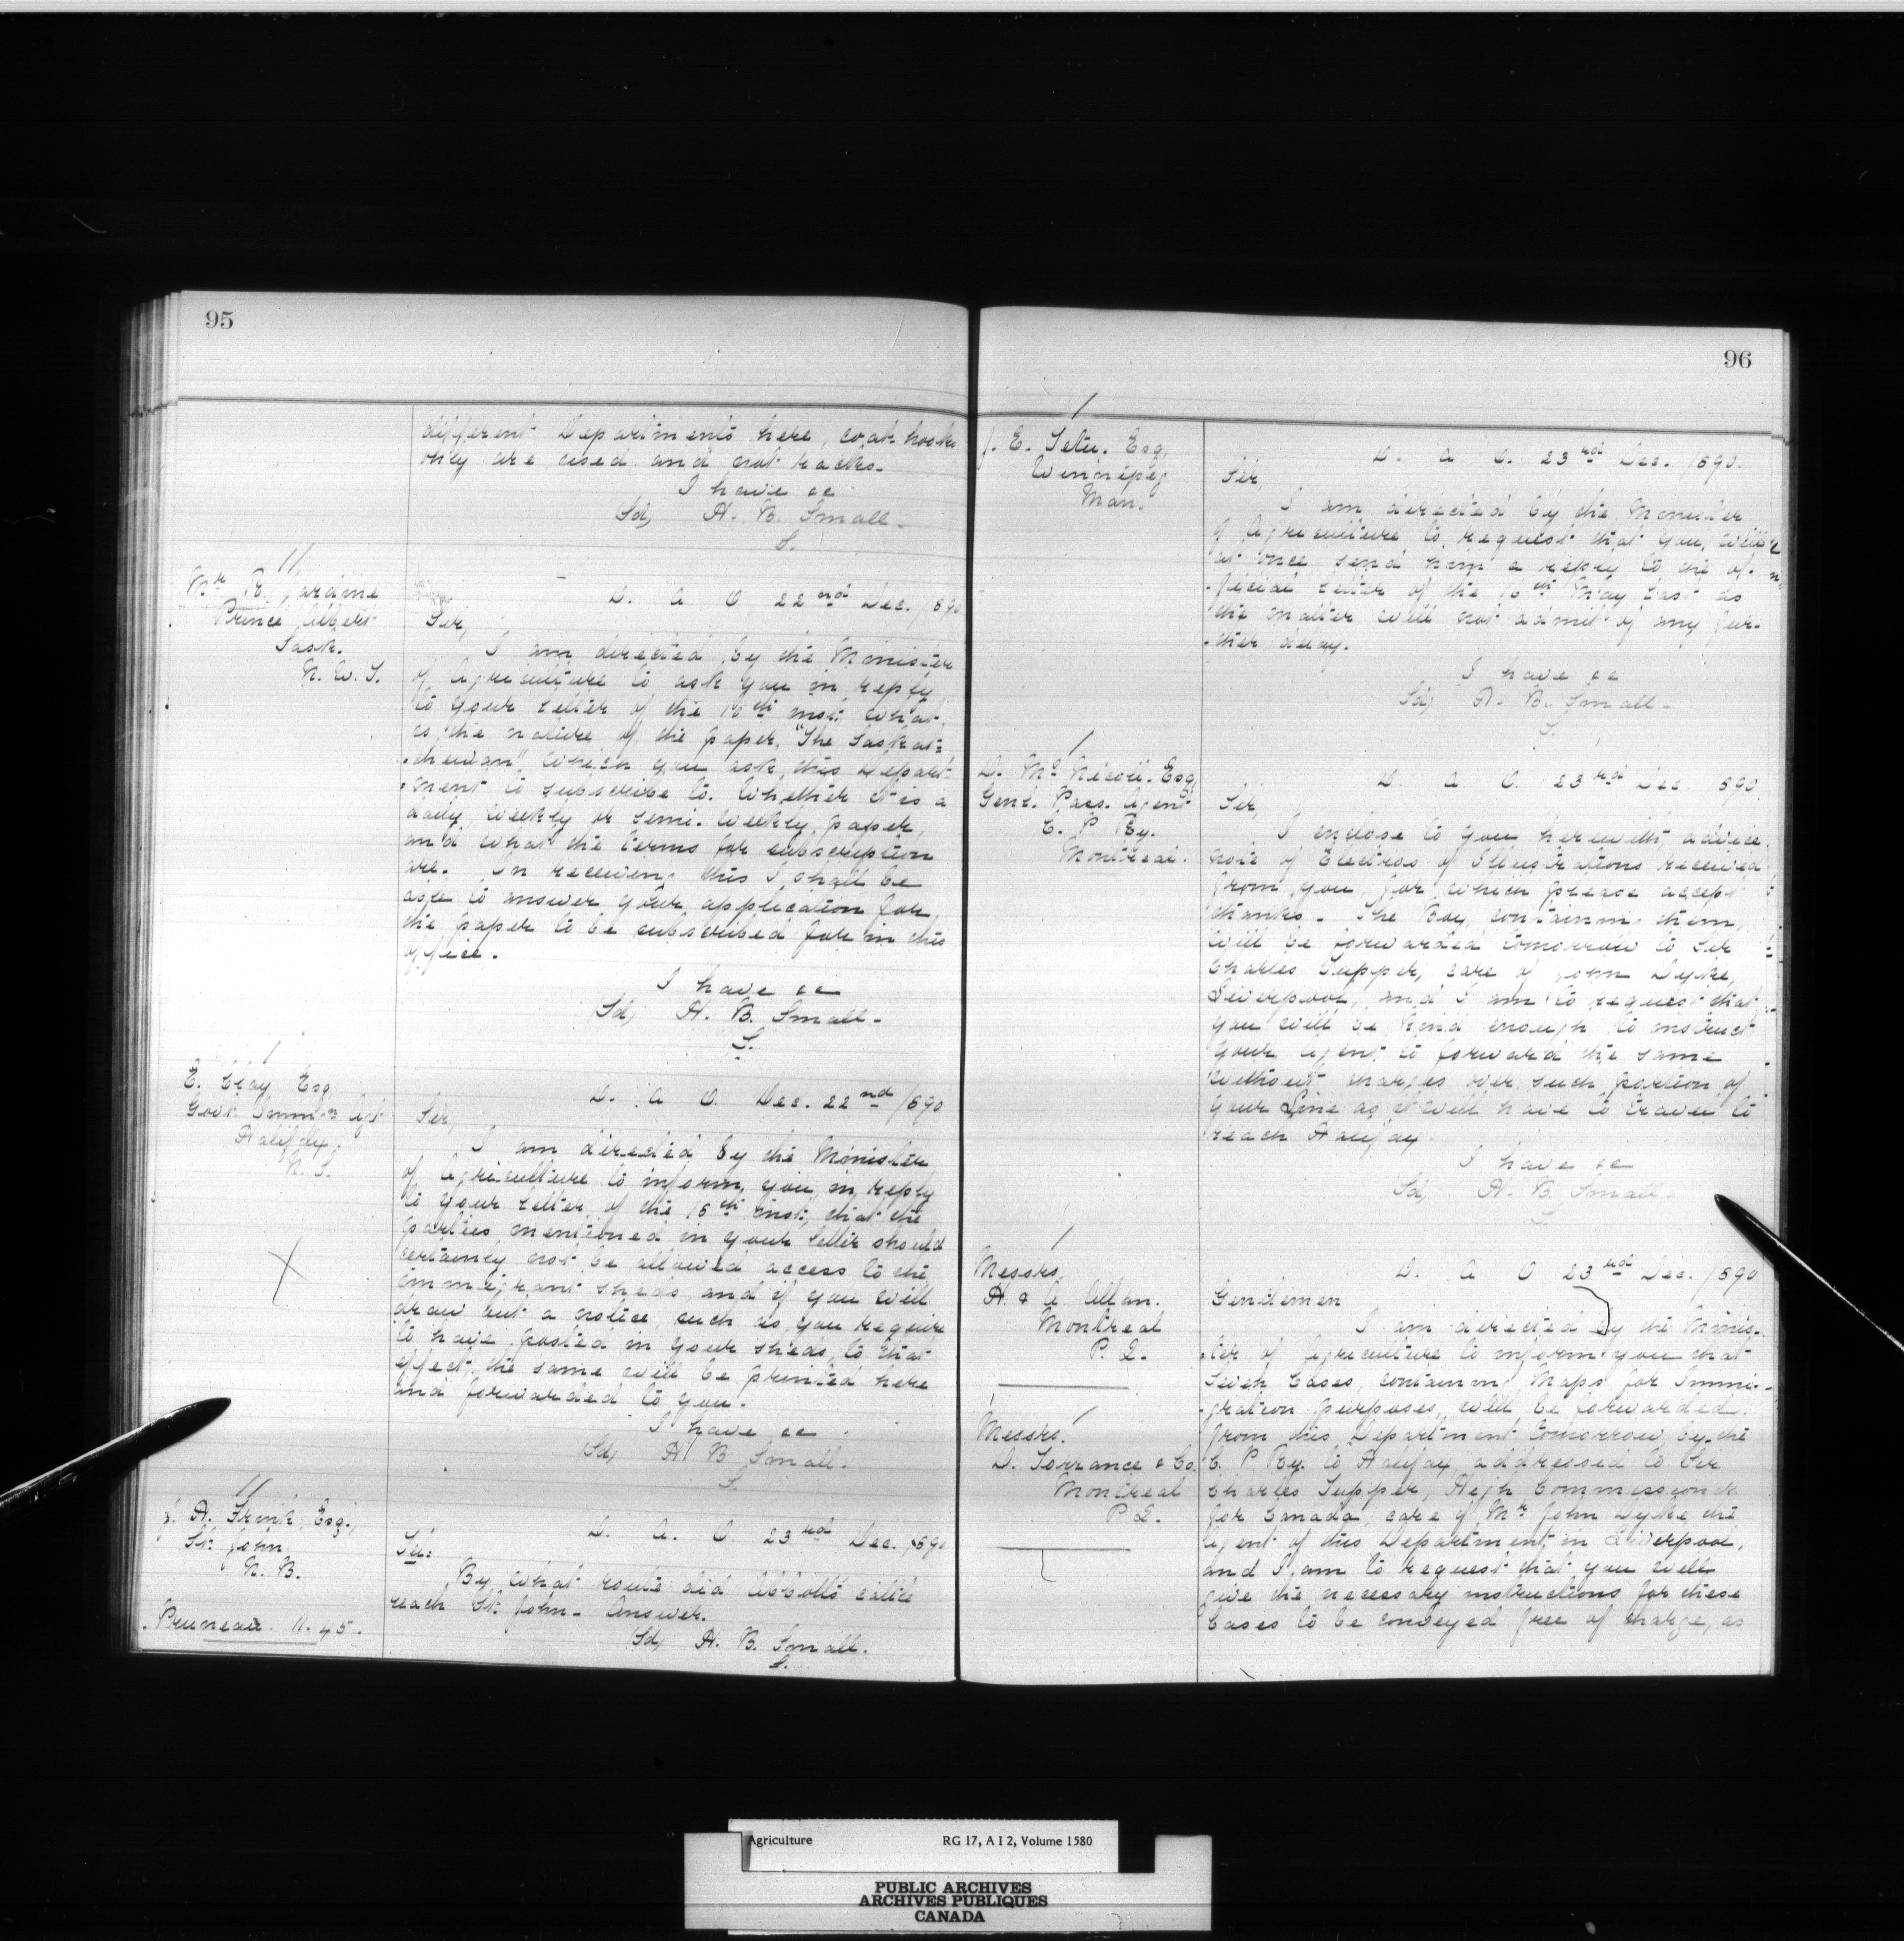 95
different Departments here, coat hooks
only are used and not racks.
I have &c
(Sd) H. B. Small.
S.
Mr. R. Jardine
Prince Albert
Sask.
N. W. T.
D. A O 22nd Dec. 1890
Sir,
I am directed by the Minister
of Agriculture to ask you in reply
to your letter of the 16th inst; what
is the nature of the paper, "The Saskat=
=chewan" which you ask this Depart=
=ment to subscribe to. Whether it is a
daily, weekly or semi-weekly paper,
and what the terms for subscription
are. On receiving this I shall be
able to answer your application for
the paper to be subscribed for in this
office.
I have &c
(Sd) H. B. Small.
S.
E. Clay Esq
Govt. Immtn Agt
Halifax.
N. S.
D. A O. Dec. 22nd 1890
Sir,
I am directed by the Minister
of Agriculture to inform you, in reply
to your letter of the 15th inst; that the
parties mentioned in your letter should
certainly not be allowed access to the
immigrant sheds, and if you will
draw out a notice, such as you require
to have posted in your sheds, to that
effect, the same will be printed here
and forwarded to you.
I have &c
(Sd) H B Small.
S.
J. H. Frink, Esq.,
St. John
N. B.
D. A. O. 23rd Dec. 1890
Sir:
By what route did Abbotts cattle
reach St. John - Answer.
(Sd) H. B. Small.
S.
Pruneau 11.45.
96
J. E. Tetu. Esq,
Winnipeg
Man.
D. A O. 23rd Dec. 1890.
Sir,
I am directed by the Minister
of Agriculture to request that you will
at once send him a reply to the of-
-ficial letter of the 16th May last as
the matter will not admit of any fur-
-ther delay.
I have &c
(Sd) H. B. Small.
S.
D. Mc Nicoll. Esq
Genl. Pass. Agent
C. P Ry.
Montreal.
D. A. O. 23rd Dec. 1890
Sir,
I enclose to you herewith, advice
note of Electros of Illustrations received
from you, for which please accept
thanks. The Box, containing them,
will be forwarded tomorrow to Sir
Charles Tupper, care of John Dyke,
Liverpool, and I am to request that
you will be kind enough to instruct
your Agent to forward the same
without charges over such portion of
your Line as it will have to travel to
reach Halifax
I have &c
(Sd) H. B. Small.
S.
Messrs
H. & A. Allan.
Montreal
P. Q.
Messrs.
D. Torrance & Co.
Montreal
P Q.
D. A O 23rd Dec. 1890
Gentlemen
I am directed by the Minis-
-ter of Agriculture to inform you that
Seven Cases, containing Maps for Immi-
-gration purposes, will be forwarded
from this Department tomorrow, by the
C. P Ry. to Halifax, addressed to Sir
Charles Tupper, High Commissioner
for Canada, care of Mr John Dyke the
Agent of this Department in Liverpool,
and I am to request that you will
give the necessary instructions for these
Cases to be conveyed free of charge, as
Agriculture RG 17, A I 2, Volume 1580
PUBLIC ARCHIVES
ARCHIVES PUBLIQUES
CANADA